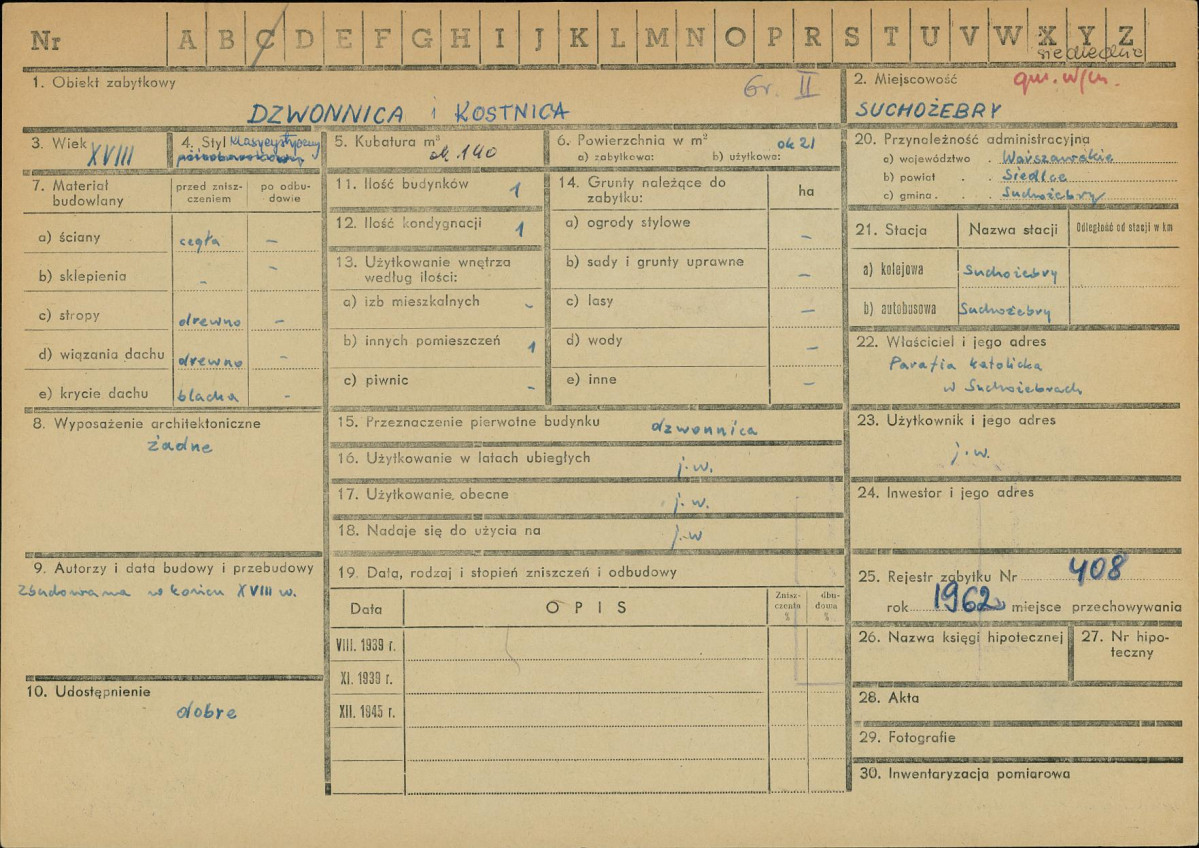 Nr A B C D E F G H I J K L M N O P R S T U V W X Y Z
siedleckie
1. Obiekt zabytkowy
Gr. II
DZWONNICA i KOSTNICA
2. Miejscowość
SUCHOŻEBRY
3. Wiek XVIII
4. Styl klasycystyczny
5. Kubatura m³ ok. 140
6. Powierzchnia w m² ok 21
a) zabytkowa: b) użytkowa:
7. Materiał budowlany
przed zniszczeniem
po odbudowie
a) ściany cegła –
b) sklepienia – –
c) stropy drewno –
d) wiązania dachu drewno –
e) krycie dachu blacha –
8. Wyposażenie architektoniczne
żadne
9. Autorzy i data budowy i przebudowy
Zbudowana w końcu XVIII w.
10. Udostępnienie
dobre
11. Ilość budynków 1
12. Ilość kondygnacji 1
13. Użytkowanie wnętrza
według ilości:
a) izb mieszkalnych –
b) innych pomieszczeń 1
c) piwnic –
14. Grunty należące do
zabytku: ha
a) ogrody stylowe –
b) sady i grunty uprawne –
c) lasy –
d) wody –
e) inne –
15. Przeznaczenie pierwotne budynku dzwonnica
16. Użytkowanie w latach ubiegłych j.w.
17. Użytkowanie obecne j.w.
18. Nadaje się do użycia na j.w
19. Data, rodzaj i stopień zniszczeń i odbudowy
Data OPIS Zniszczenia % dbudowa %
VIII. 1939 r.
XI. 1939 r.
XII. 1945 r.
20. Przynależność administracyjna
a) województwo . Warszawskie
b) powiat . . Siedlce
c) gmina . . Suchożebry
21. Stacja Nazwa stacji Odległość od stacji w km
a) kolejowa Suchożebry
b) autobusowa Suchożebry
22. Właściciel i jego adres
Parafia katolicka
w Suchożebrach
23. Użytkownik i jego adres
j.w.
24. Inwestor i jego adres
25. Rejestr zabytku Nr 408
rok 1962 miejsce przechowywania
26. Nazwa księgi hipotecznej
27. Nr hipoteczny
28. Akta
29. Fotografie
30. Inwentaryzacja pomiarowa